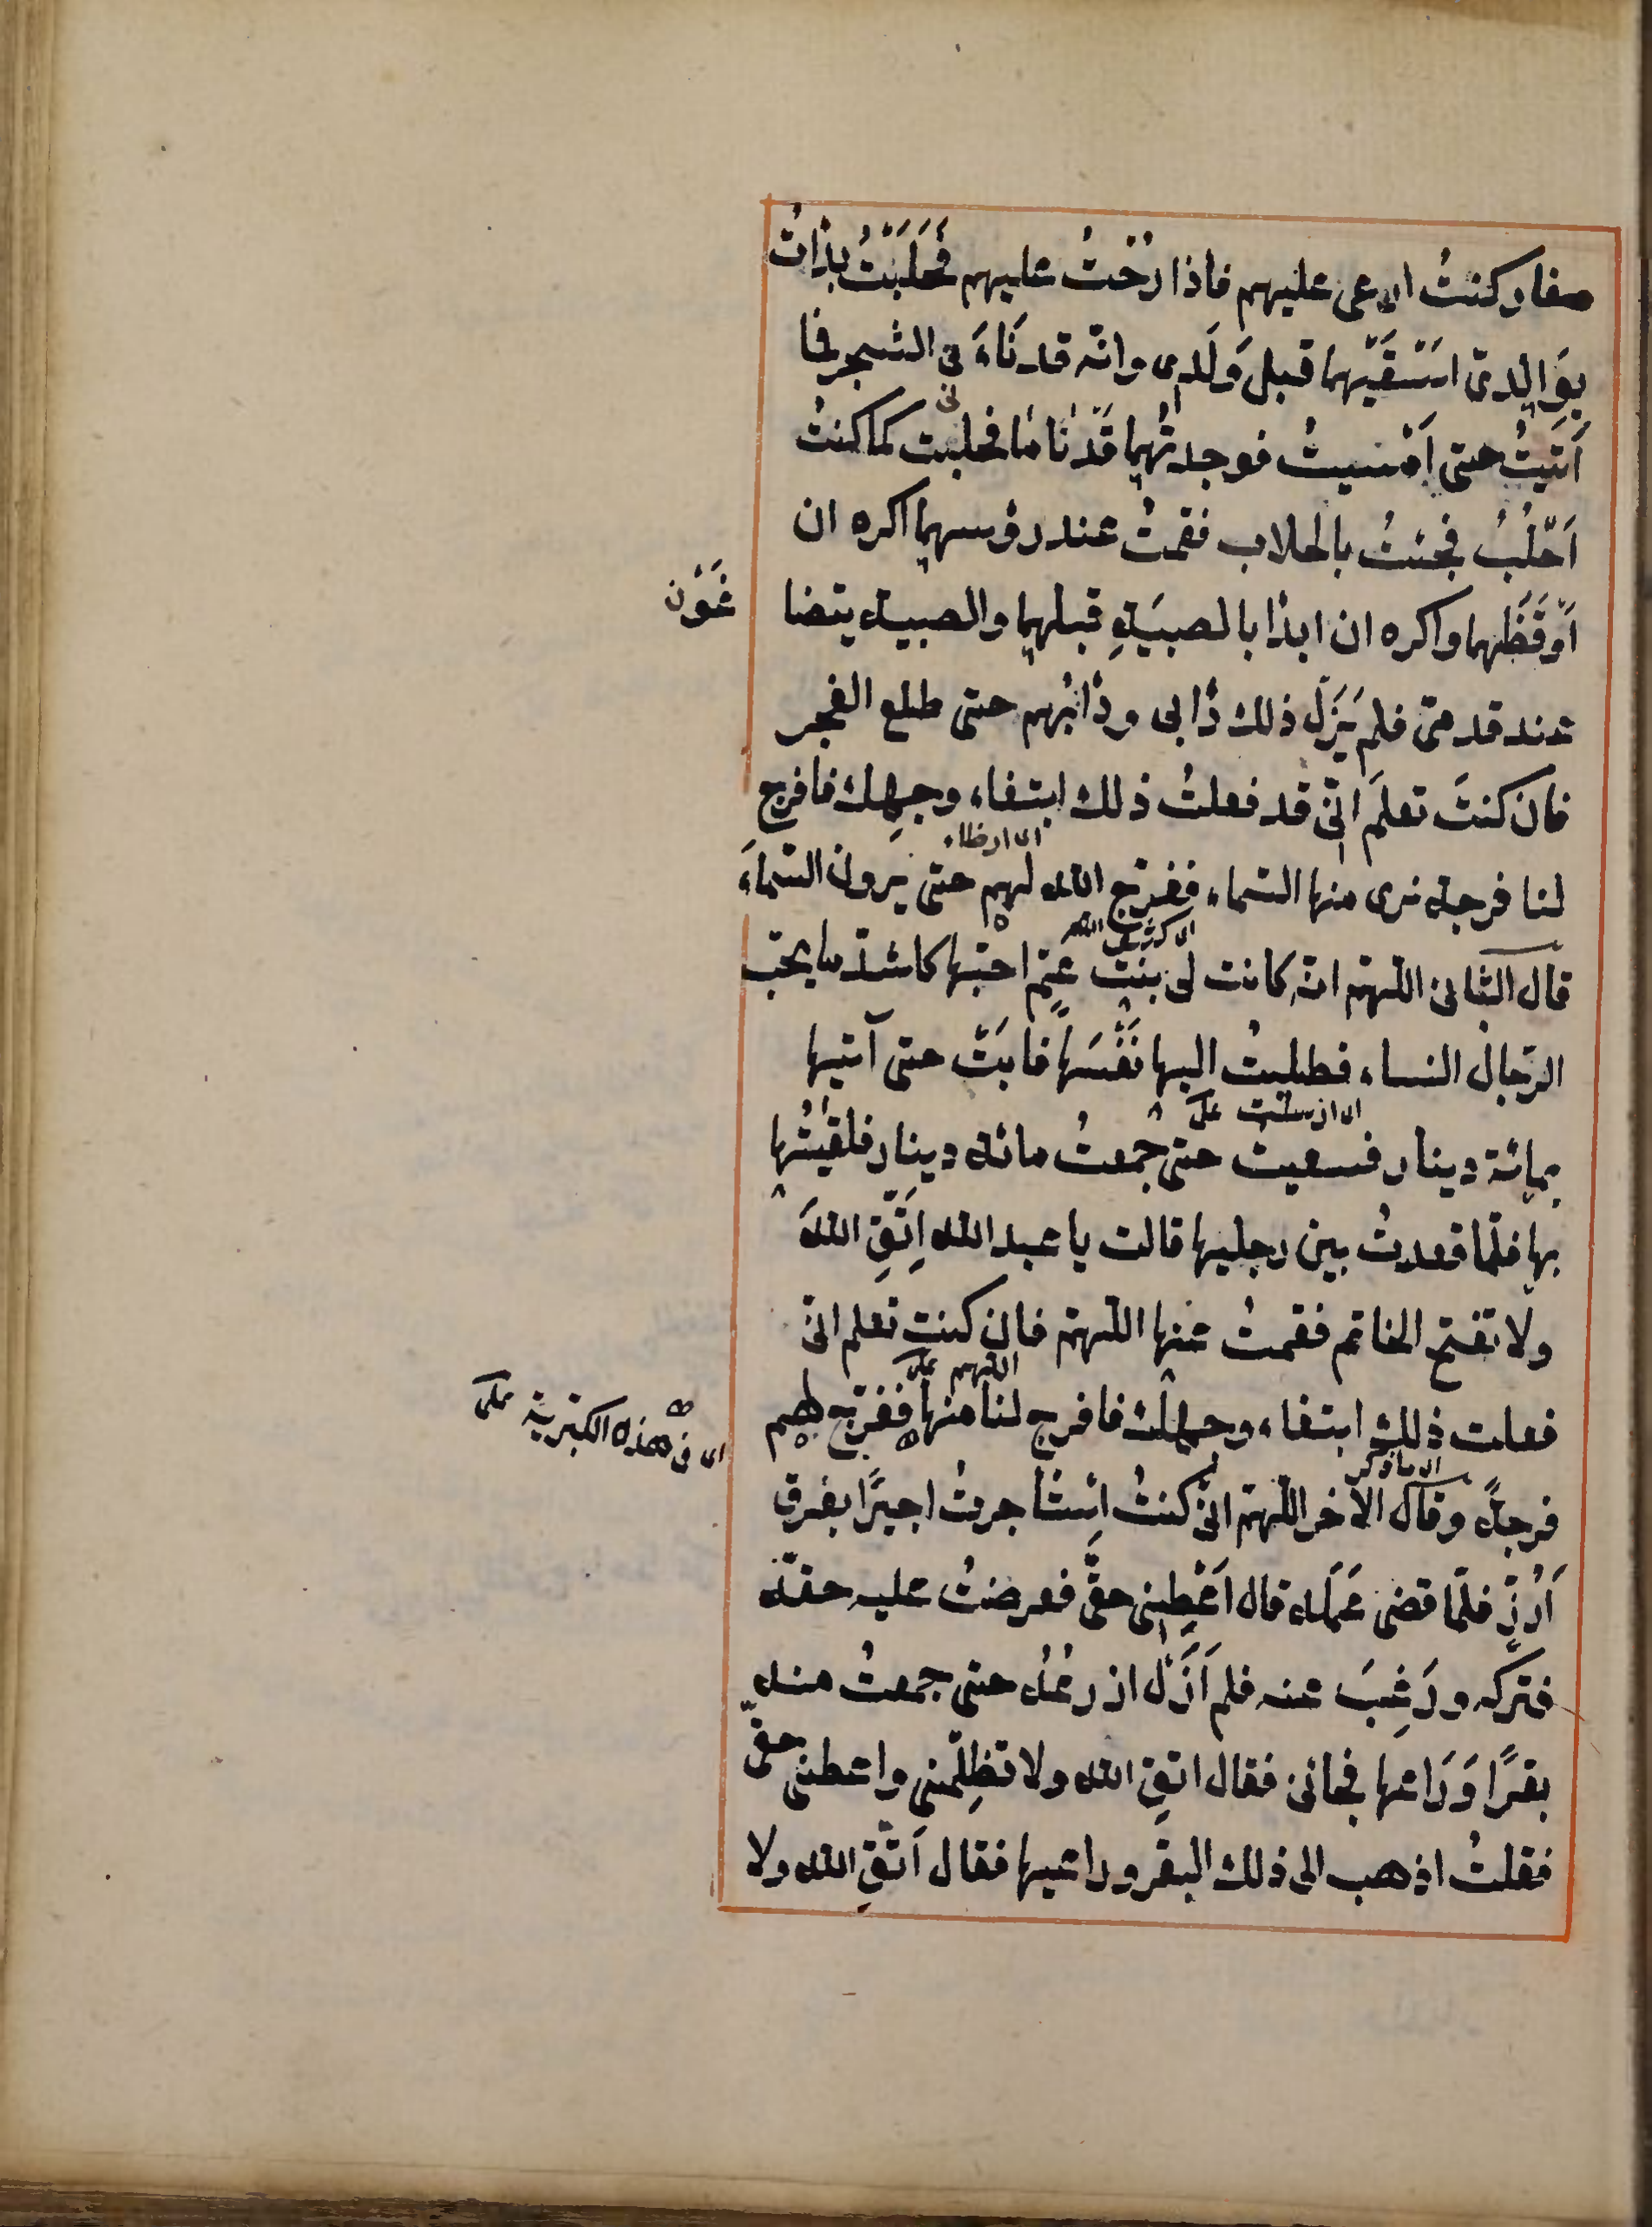 صغار كنتُ ارعى عليهم فاذا رُحْتُ عليهم فَحَلَبْتُ بدأتُ
بِوَالِدىّ اَسْتَقَيْهما قبل وَلَدى وانّه قد نَاءَ بى الشجر فما
اَتَيْتُ حتى اَمْسيتُ فوجدتُهما قَدْ نَامَا فحلبت كما كنتُ
اَحْلُبُ فجئتُ بالحلاب فقمتُ عند رؤسهما اكره ان
اُوْقَظَهما واكره ان ابدأ بالصبيَةِ قبلهما والصبية يتضا
غَوْن
عند قدمىّ فلم يَزَل ذلك دَأبى ودَأبُهم حتى طلع الفجر
فان كنتَ تعلَم انّى قد فعلتُ ذلك ابتغاء وجهِك فافرج
لنا فرجة نرى منها السّماء ففرّج الله لهم حتى يرون السّماءَ
قال الثانى اللّهمّ انّه كانت لى بنت عمّ احبّها كاشدّ ما يحبّ
الرّجال النساء فطلبتُ اليها نَفْسَها فابَتْ حتى آتيها
بمائة دينار فسعيتُ حتى جمعتُ مائة دينار فلقيتُها
بها فلمّا قعدتُ بين رجليها قالت يا عبد الله اِتَّقِ اللهَ
ولا تفتح الخاتم فقمتُ عنها اللّهمّ فان كنت تعلم انّى
فعلت ذلك ابتغاء وجهك فافرج لنا منها ففرّج لهم
اللهم
اى فى هذه الكبرية
فرجةً وقال الآخر اللّهمّ انّى كنتُ اِستأجرتُ اجيرًا بفرق
اَرُزٍّ فلمّا قضى عَمَلَه قال اَعْطِنى حقّى فعرضتُ عليه حقّه
فتركه ورَغِبَ عنه فلم اَزَلْ ازرعُه حتى جمعتُ منه
بقرًا وَرَاعها فجانى فقال اتقِ الله ولا تظلِمْنى واعطنى حقّى
فقلتُ اذهب الى ذلك البقر وراعيها فقال اتّقِ الله ولا